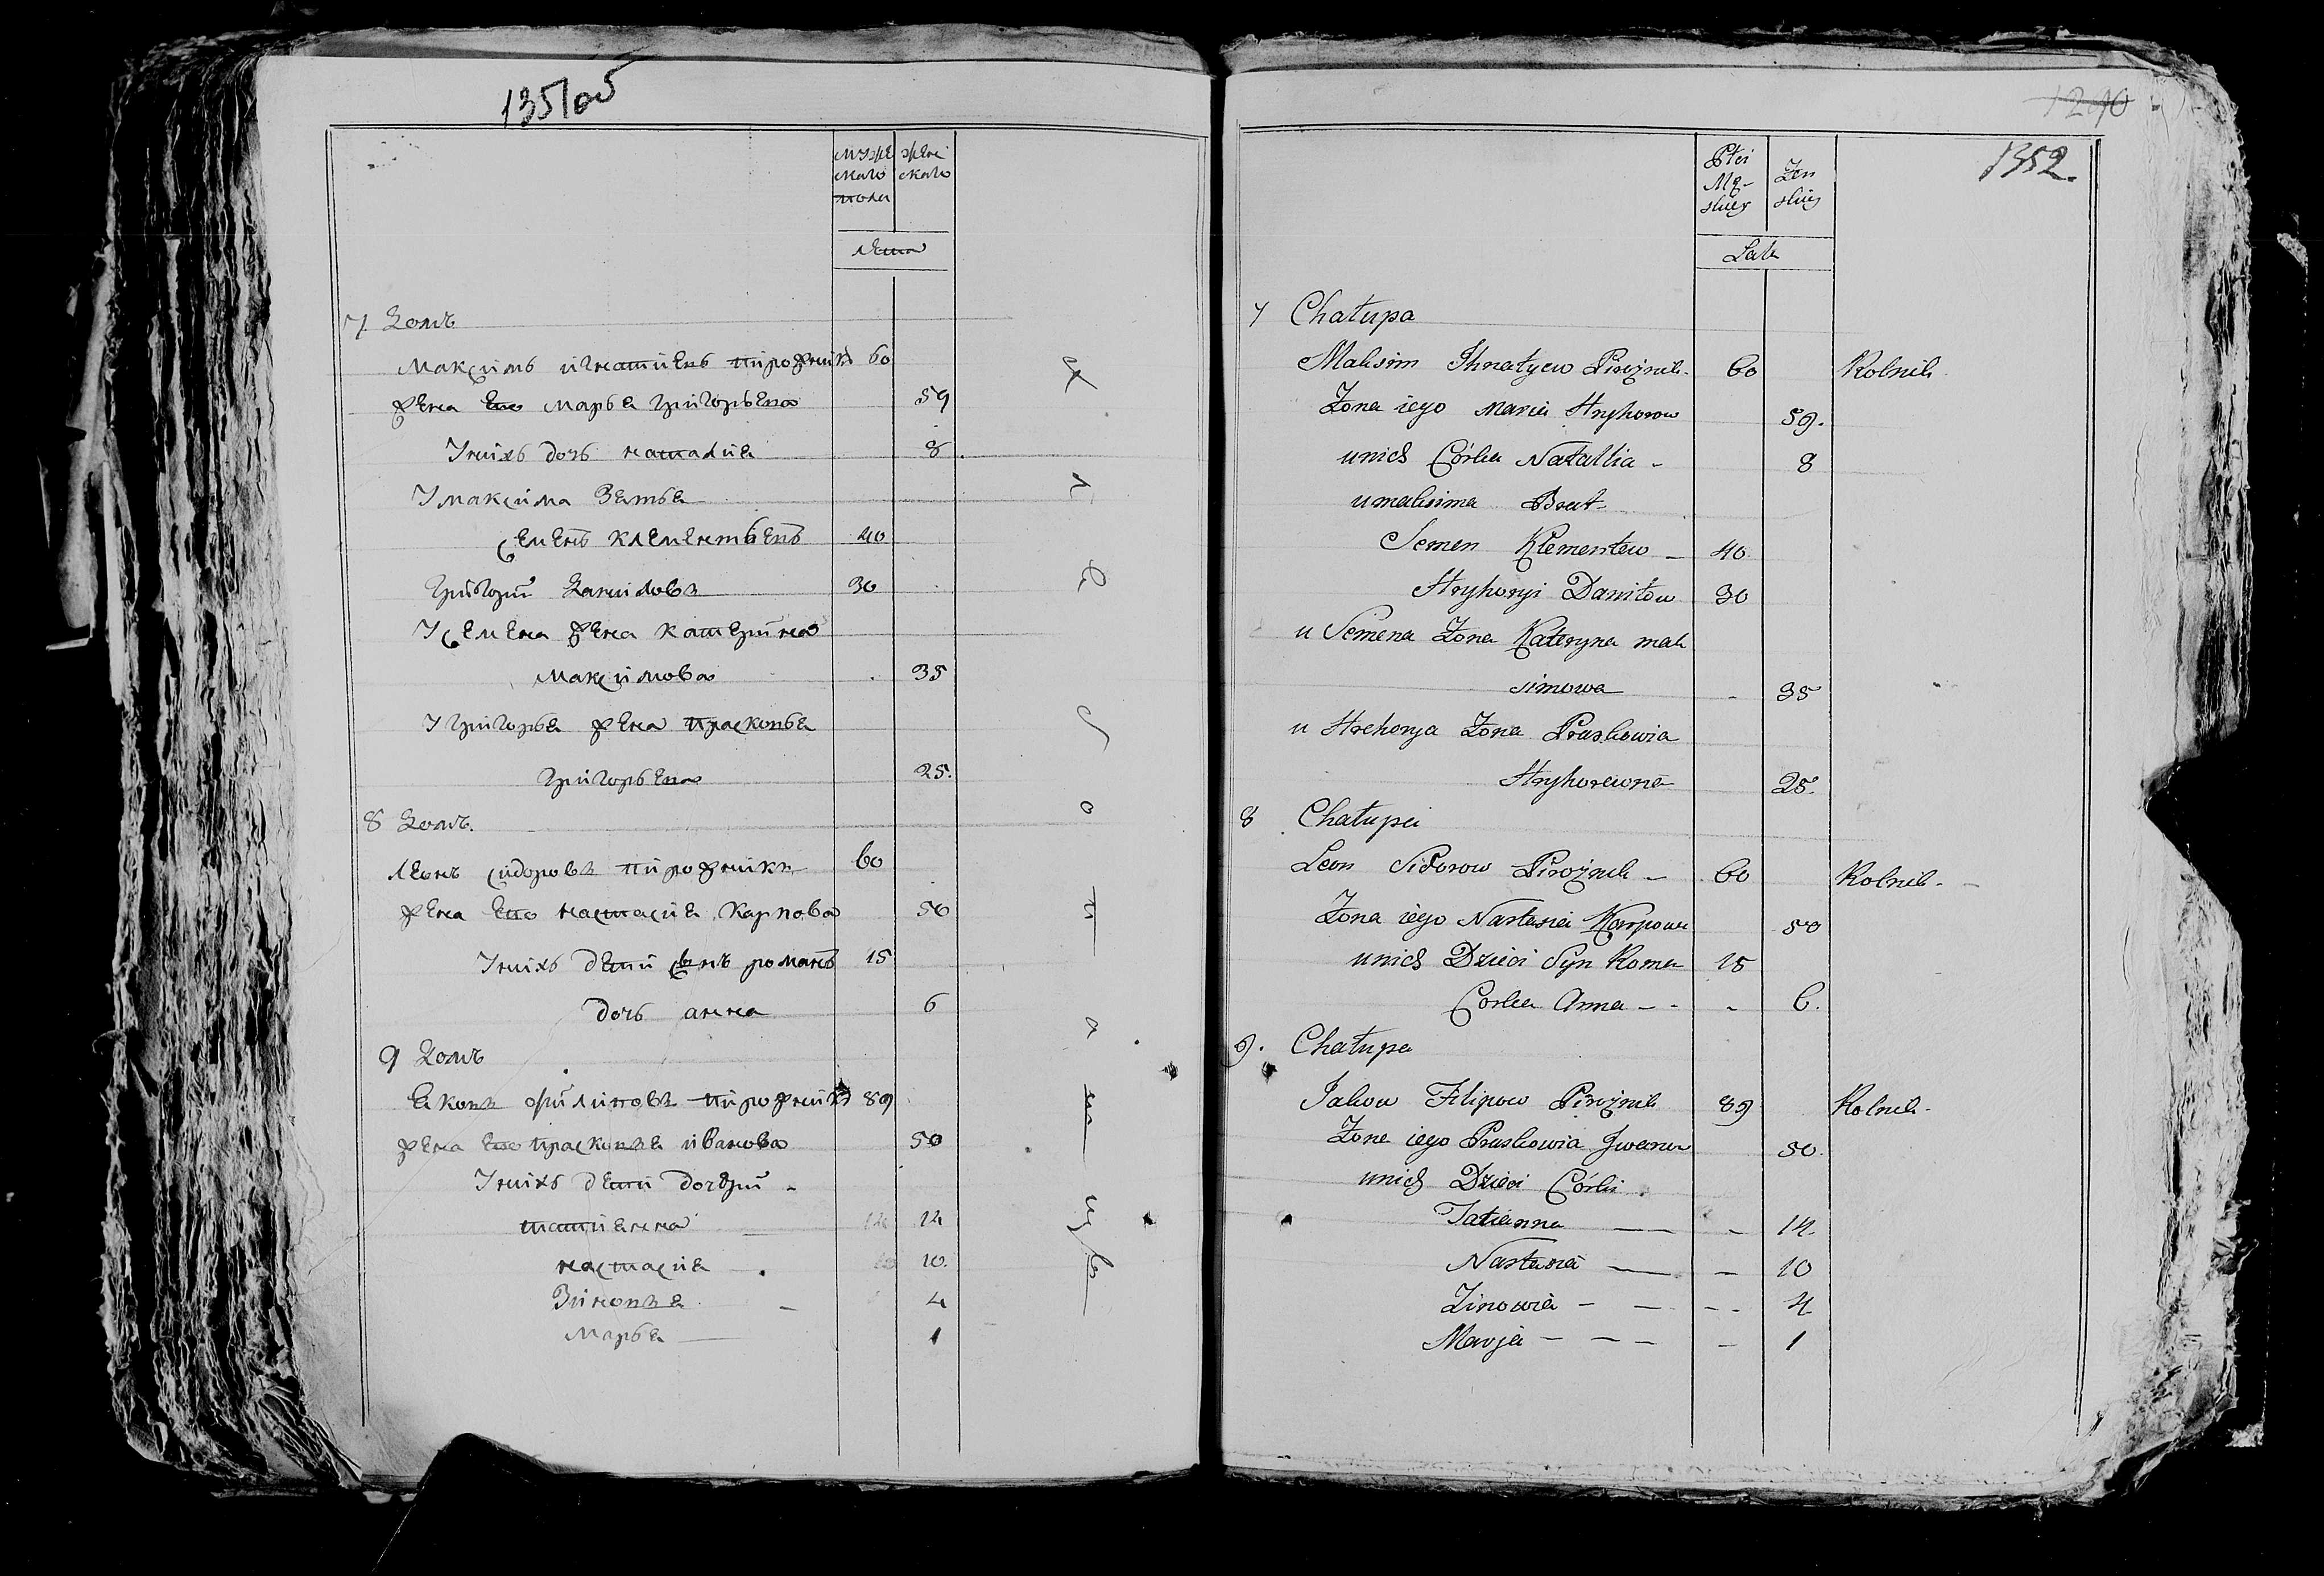 1351об
муже
скаго
полу
женс
скаго
лета
7 Домъ
Максимъ игнатиевъ пирожникъ 60
жена Его марья григорьева 59
У нихъ дочь наталия 8
У максима Зятья
Семенъ клементьевъ 40
Григорий Даниловъ 30
У Семена жена катерина
максимова 35
У григорья жена прасковья
Григорьева 25.
8 Домъ.
Леонъ сидоровъ пирожникъ 60
жена Его настасия карпова 50
У нихъ дети сынъ романъ 15
дочь анна 6
9 Домъ
Яковъ филиповъ пирожникъ 89
жена Его прасковья иванова 50
У нихъ дети дочери -
татиянна 14
настасия 10.
Зиновья - 4
Марья 1
х
л
ѣ
б
о
п
а
ш
ц
ы
1290
1352.
Płci
Mę-
skiey
Żen
skiey
Lata
7 Chałupa
Maksim Ihnatyew Pirożnik - 60 Rolnik
Żona iego Maria Hryhorow 59.
u nich Córka Natallia - 8
u maksima Brat -
Semen Klementew - 40
Hryhoryi Daniłow 30
u Semena Żona Kateryna mak
simowa - 35
u Hrehorya Żona Praskowia
Hryhorewna 25.
8 Chałupa
Leon Sidorow Pirożnik - 60 Rolnik -
Żona iego Nastasia Karpowa 50
u nich Dzieci Syn Roman 15
Corka Anna - - - 6.
9. Chałupa
Jakow Filipow Pirożnik 89 Rolnik -
Żona iego Praskowia Iwanow 50.
u nich Dzieci Córki
Tatianna - - 14
Nastasia - - 10
Zinowia - - - - 4
Marja - - - - 1